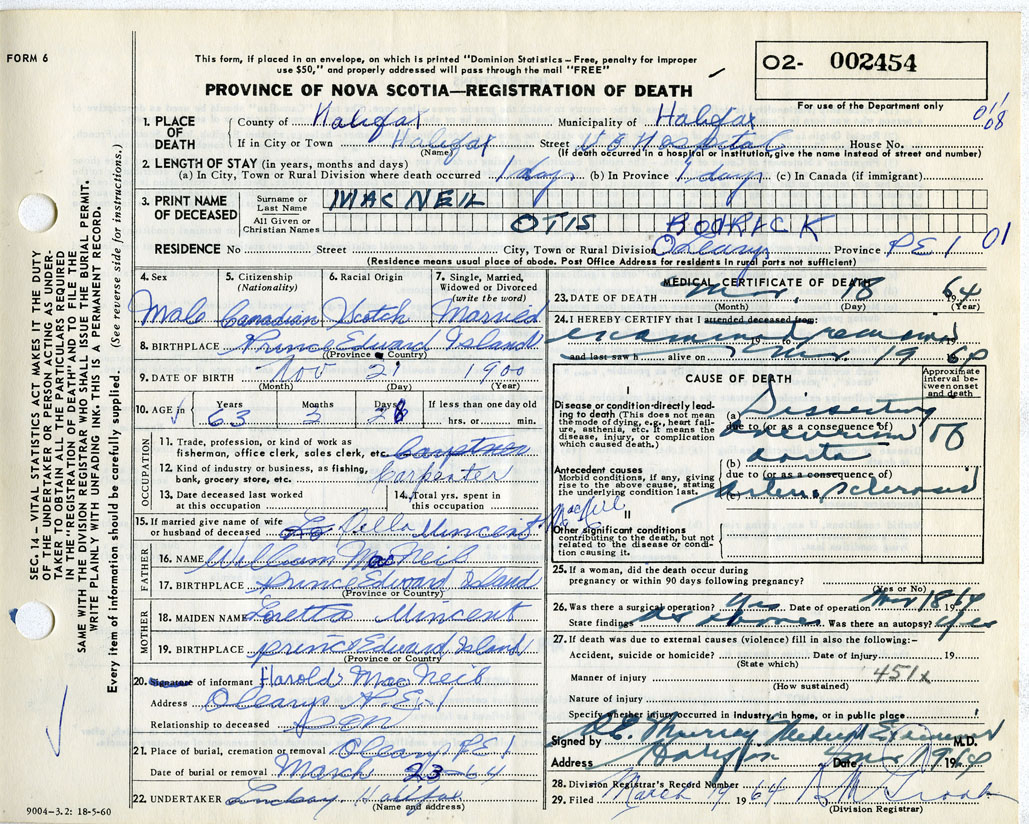 FORM 6
This form, if placed in an envelope, on which is printed "Dominion Statistics – Free, penalty for improper
use $50," and properly addressed will pass through the mail "FREE"
PROVINCE OF NOVA SCOTIA—REGISTRATION OF DEATH
O2- 002454
For use of the Department only
SEC. 14 – VITAL STATISTICS ACT MAKES IT THE DUTY
OF THE UNDERTAKER OR PERSON ACTING AS UNDER-
TAKER TO OBTAIN ALL THE PARTICULARS REQUIRED
IN THE "REGISTRATION OF DEATH" AND TO FILE THE
SAME WITH THE DIVISION REGISTRAR WHO SHALL ISSUE THE BURIAL PERMIT.
WRITE PLAINLY WITH UNFADING INK. THIS IS A PERMANENT RECORD.
Every item of information should be carefully supplied. (See reverse side for instructions.)
1. PLACE OF DEATH
County of Halifax Municipality of Halifax
If in City or Town Halifax Street V G Hospital House No.
(Name) (If death occurred in a hospital or institution, give the name instead of street and number)
2. LENGTH OF STAY (in years, months and days)
(a) In City, Town or Rural Division where death occurred 1 day (b) In Province 1 day (c) In Canada (if immigrant)
3. PRINT NAME OF DECEASED
Surname or Last Name MAC NEIL
All Given or Christian Names OTIS RODRICK
RESIDENCE No. Street City, Town or Rural Division O'Leary Province PE I 01
(Residence means usual place of abode. Post Office Address for residents in rural parts not sufficient)
4. Sex 5. Citizenship (Nationality) 6. Racial Origin 7. Single, Married, Widowed or Divorced (write the word)
Male Canadian Scotch Married
8. BIRTHPLACE Prince Edward Island
(Province or Country)
9. DATE OF BIRTH Nov 21 1900
(Month) (Day) (Year)
10. AGE in Years Months Days If less than one day old
63 hrs. or min.
OCCUPATION
11. Trade, profession, or kind of work as
fisherman, office clerk, sales clerk, etc.
12. Kind of industry or business, as fishing,
bank, grocery store, etc. Carpenter
13. Date deceased last worked
at this occupation
14. Total yrs. spent in
this occupation
15. If married give name of wife
or husband of deceased Della Mincent
FATHER
16. NAME William MacNeil
17. BIRTHPLACE Prince Edward Island
(Province or Country)
MOTHER
18. MAIDEN NAME Loretta Mincent
19. BIRTHPLACE Prince Edward Island
(Province or Country)
20. Signature of informant Harold MacNeil
Address O'Leary P.E.I
Relationship to deceased Son
21. Place of burial, cremation or removal O'Leary PE I
Date of burial or removal March 23-64
22. UNDERTAKER Lindsay Halifax
(Name and address)
9004-3.2: 18-5-60
MEDICAL CERTIFICATE OF DEATH
23. DATE OF DEATH Mar. 18 1964
(Month) (Day) (Year)
24. I HEREBY CERTIFY that I attended deceased from:
examined remains 19 to
and last saw h alive on Mar 19 1964
CAUSE OF DEATH
Approximate interval between onset and death
I
Disease or condition directly leading to death (This does not mean the mode of dying, e.g., heart failure, asthenia, etc. It means the disease, injury, or complication which caused death.)
(a) Dissecting
due to (or as a consequence of)
aneurism of
Antecedent causes
Morbid conditions, if any, giving rise to the above cause, stating the underlying condition last.
(b) aorta
due to (or as a consequence of)
(c) Arterio sclerosis
II
Other significant conditions
contributing to the death, but not related to the disease or condition causing it.
25. If a woman, did the death occur during
pregnancy or within 90 days following pregnancy?
(Yes or No)
26. Was there a surgical operation? Yes Date of operation Mar 18 1964
State findings as above Was there an autopsy? Yes
27. If death was due to external causes (violence) fill in also the following:–
Accident, suicide or homicide? Date of injury 19
(State which)
Manner of injury 451x
(How sustained)
Nature of injury
Specify whether injury occurred in Industry, in home, or in public place
Signed by Murray Medical Examiner M.D.
Address Halifax Date Mar 19 1964
28. Division Registrar's Record Number
29. Filed March 19 1964
(Division Registrar)